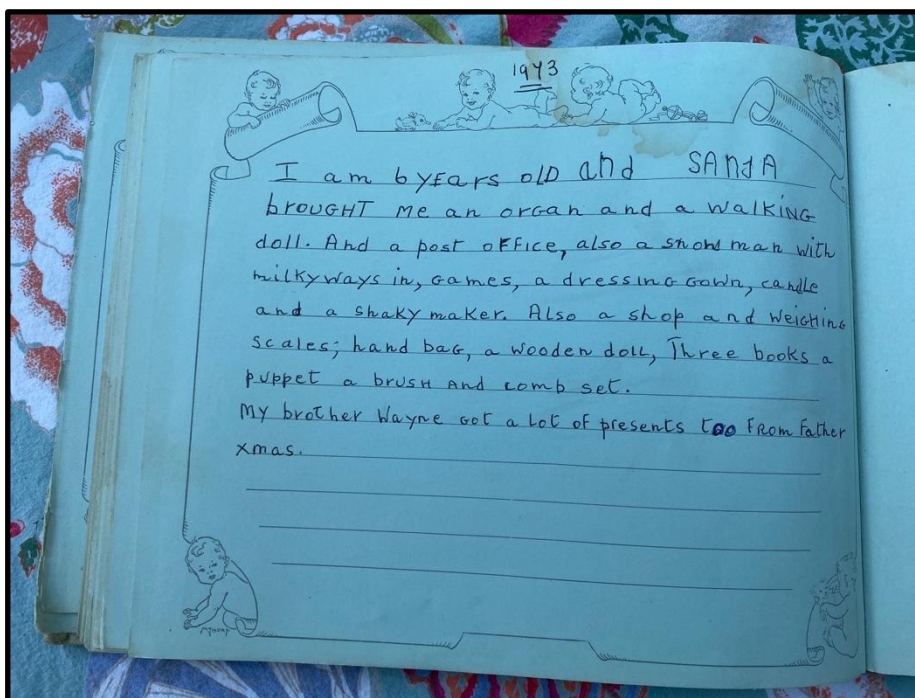 1973
I am 6 yEars OLD and SANtA
brOUGHT me an organ and a walKING
doll. And a post OFFice, also a snow man with
milkyways in, Games, a dressing Gown, candle
and a shaky maker. Also a shop and weiGHing
scales; hand baG, a wooden doll, Three books a
puppet a brusH And comb set.
My brother Wayne Got a Lot of presents too From Father
xmas.